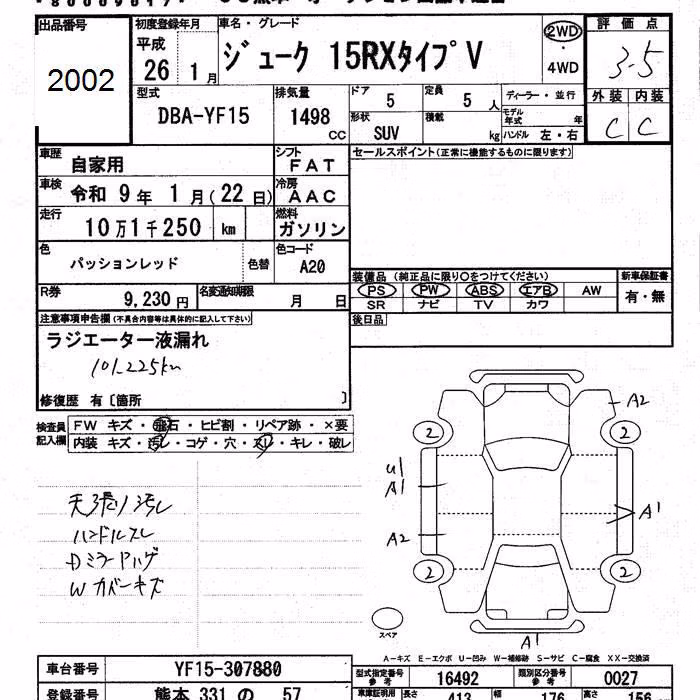 出品番号
2002
初度登録年月
平成
26 1月
車名・グレード
ジューク 15RXタイプV
2WD
・
4WD
評価点
3.5
外装 内装
C C
型式
DBA-YF15
排気量
1498
CC
ドア
5
定員
5人
ディーラー・並行
形状
SUV
積載
kg
モデル年式
年
ハンドル 左・右
車歴
自家用
シフト
FAT
セールスポイント(正常に機能するものに限ります)
車検
令和 9年 1月(22日)
冷房
AAC
走行
10万1千250 km
燃料
ガソリン
色
パッションレッド
色替
色コード
A20
装備品 (純正品に限り○をつけてください)
新車保証書
PS PW ABS エアB AW
有・無
SR ナビ TV カワ
R券
9,230円
名変通知期限
月 日
後日品
注意事項申告欄(不具合内容等は具体的に記入して下さい)
ラジエーター液漏れ
101,225km
修復歴 有〔箇所 〕
検査員記入欄
FW キズ・飛石・ヒビ割・リペア跡・×要
内装 キズ・汚レ・コゲ・穴・スレ・キレ・破レ
天張り汚レ
ハンドルスレ
DミラーAハゲ
Wカバーキズ
A2
2 2
U1
A1
A1
A2
2 2
スペア
A1
A-キズ E-エクボ U-凹み W-補修跡 S-サビ C-腐食 XX-交換済
車台番号
YF15-307880
型式指定番号
参考
16492
類別区分番号
参考
0027
登録番号
熊本 331 の 57
長さ
413
幅
176
高さ
156